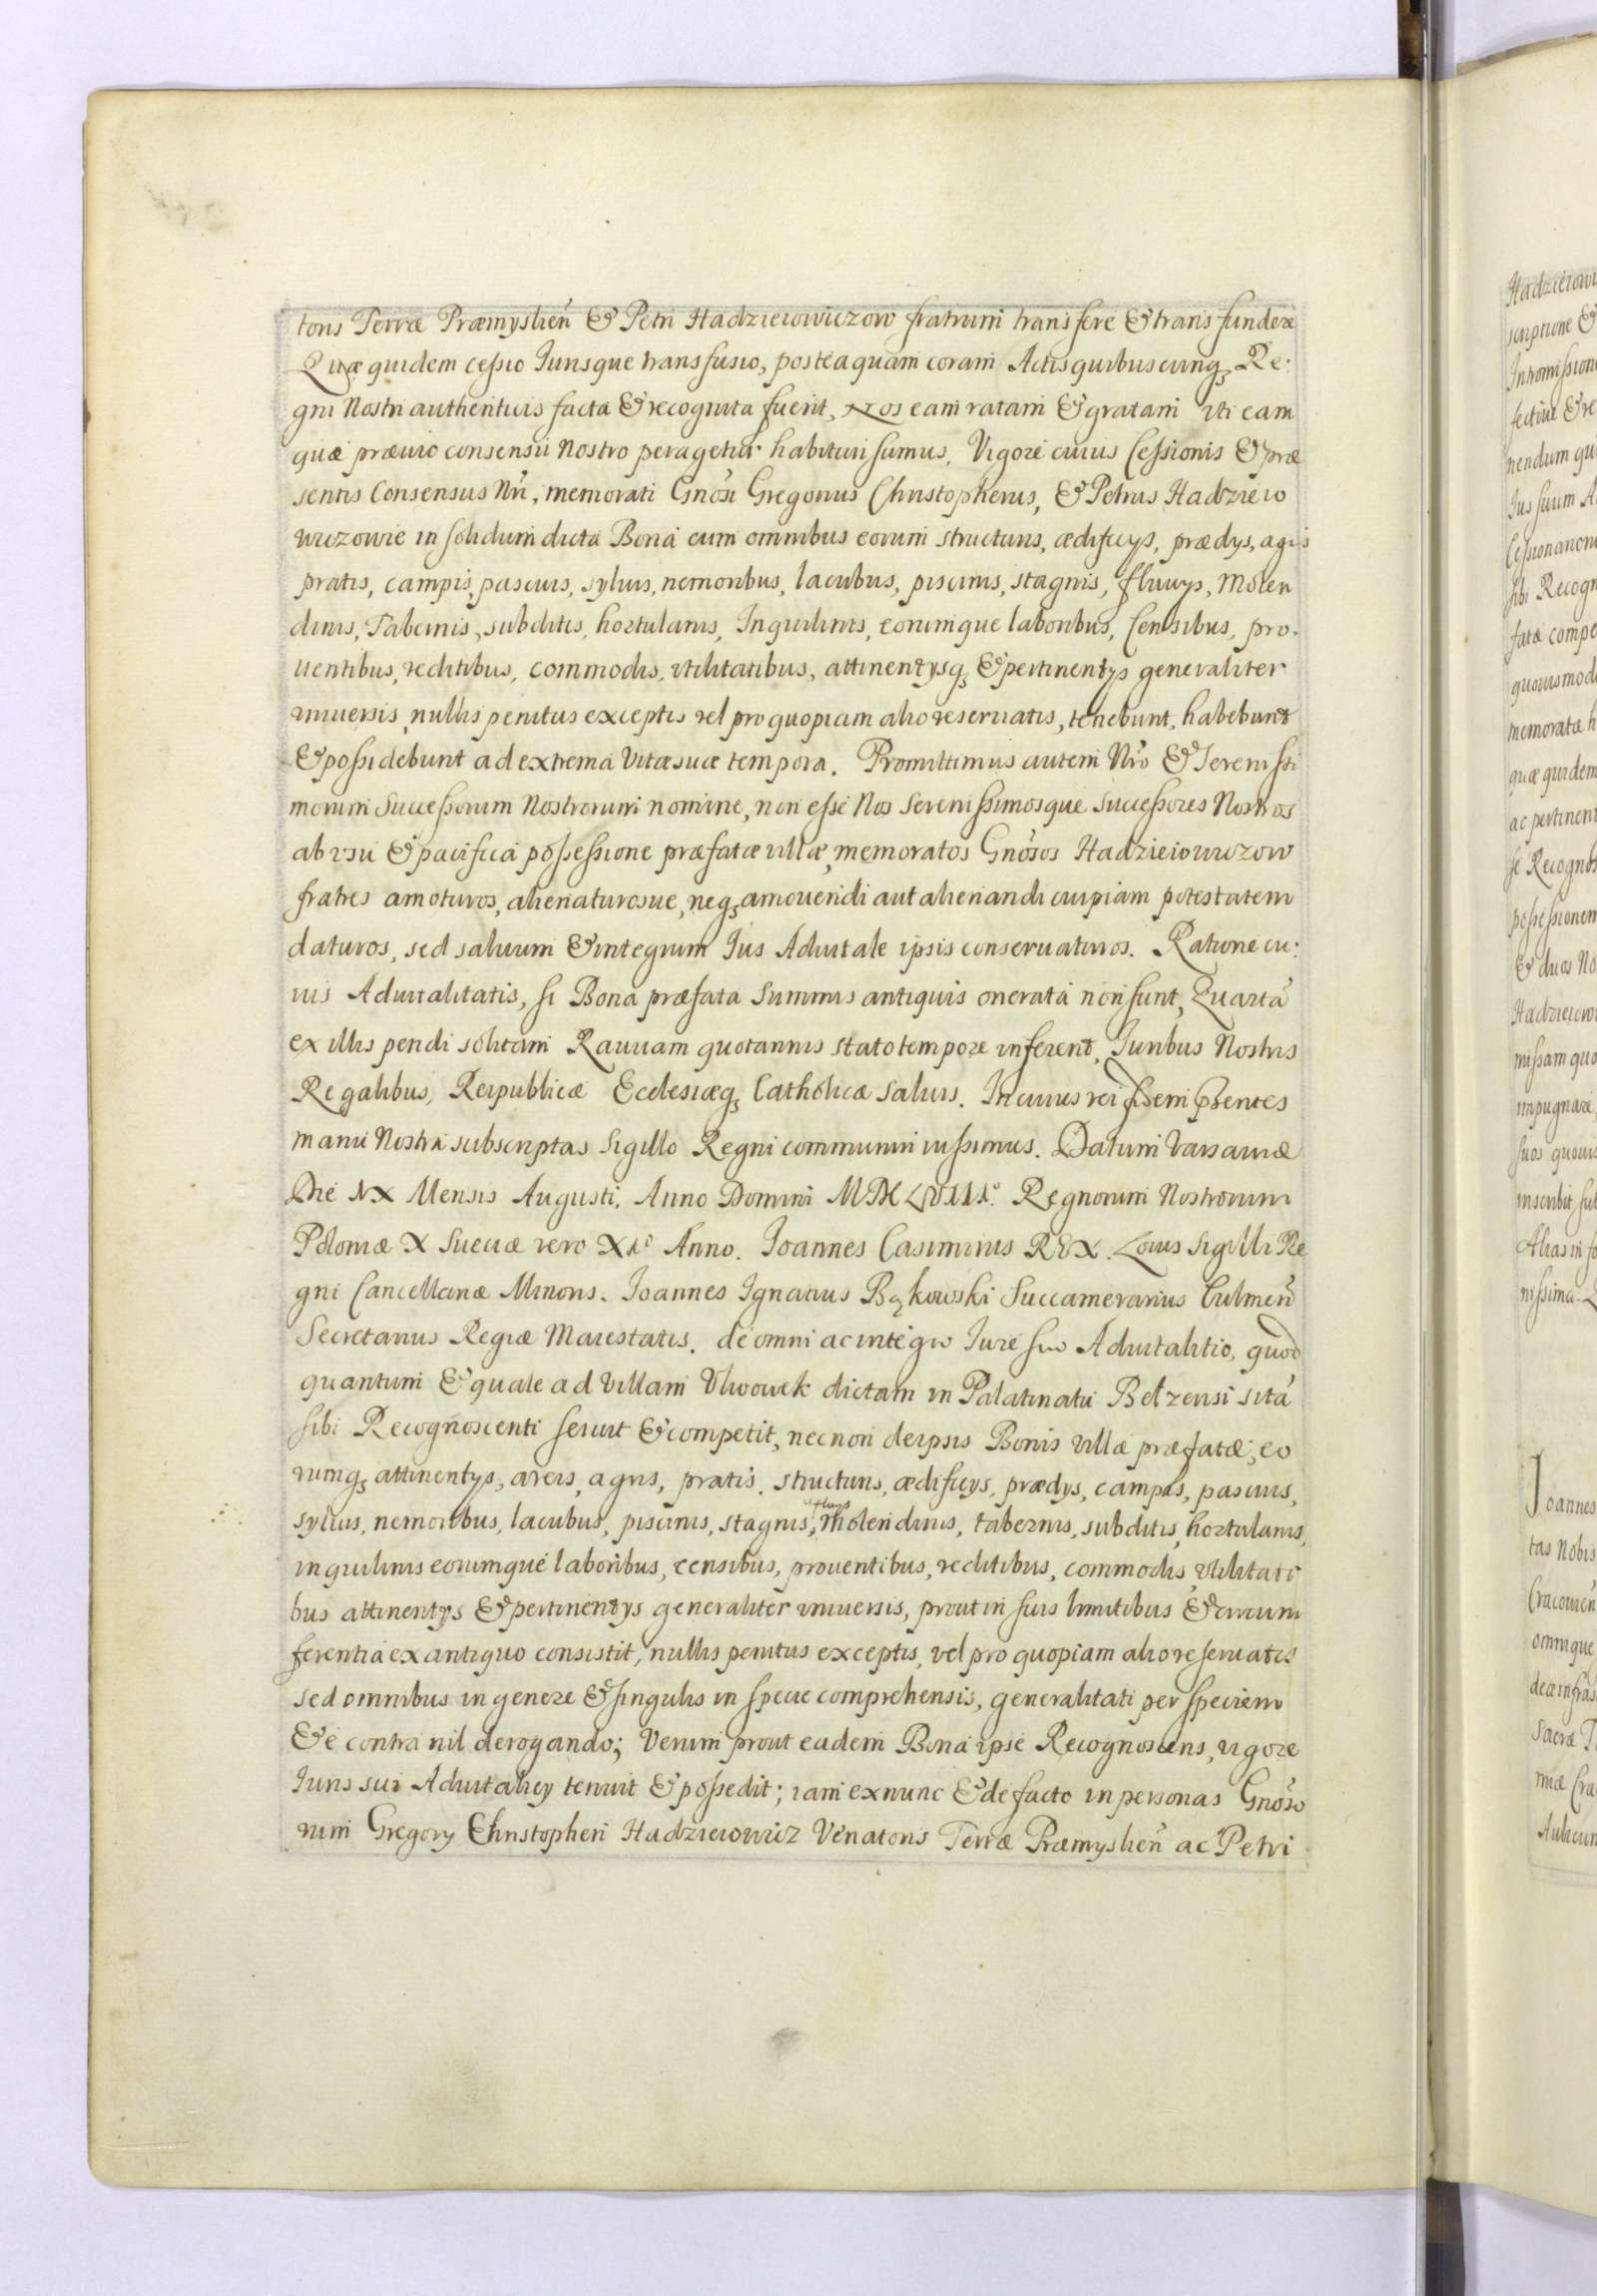 toris Terræ Præmyslieñ & Petri Hadzieiowiczow fratrum transfere & transfundere
Quæ quidem cessio Iurisque transfusio, posteaquam coram Actis quibuscunq, Re:
gni Nostri authenticis facta & recognita fuerit, Nos eam ratam & gratam vti eam
quæ præuio consensu Nostro peragetur habituri sumus. Vigore cuius Cessionis & præ
sentis Consensus Nri, memorati Gnosi Gregorius Christopherus, & Petrus Hadzieio
wiczowie in solidum dicta Bona cum omnibus eorum structuris, ædificys, prædys, agris
pratis, campis, pascuis, syluis, nemoribus, lacubus, piscinis, stagnis, fluuys, Molen
dinis, Tabernis, subditis, hortulanis, Inquilinis, eorumque laboribus, Censibus, pro.
uentibus, reditibus, commodis, vtilitatibus, attinentysq, & pertinentys generaliter
vniuersis, nullis penitus exceptis vel pro quopiam alio reseruatis, tenebunt, habebunt
& possidebunt ad extrema Vitæ suæ tempora. Promittimus autem Nro & Serenissi
morum Successorum Nostrorum nomine, non esse Nos Serenissimosque Successores Nostros
ab vsu & pacifica possessione præfatæ villæ, memoratos Gnosos Hadzieiowiczow
fratres amoturos, alienaturosue, neq, amouendi aut alienandi cuipiam potestatem
daturos, sed saluum & integrum Ius Aduitale ipsis conseruaturos. Ratione cu:
ius Aduitalitatis, si Bona præfata Summis antiquis onerata non sunt, Quartā
ex illis pendi solitam Rauuam quotannis stato tempore inferent, Iuribus Nostris
Regalibus, Reipublicæ Ecclesiæq, Catholicæ saluis. In cuius rei fidem pñtes
manu Nostra subscriptas Sigillo Regni communiri iussimus. Datum Varsauiæ
Die XX Mensis Augusti. Anno Domini MDCLVIII° Regnorum Nostrorum
Poloniæ X Sueciæ vero XI° Anno. Ioannes Casimirus REX. Locus Sigilli Re
gni Cancellariæ Minoris. Ioannes Ignatius Bąkowski Succamerarius Culmeñ
Secretarius Regiæ Maiestatis. de omni ac integro Iure suo Aduitalitio, quod
quantum & quale ad Villam Vhrowek dictam in Palatinatu Belzensi sitā
sibi Recognoscenti seruit & competit, necnon de ipsis Bonis villæ præfatæ, eo
rumq, attinentys, areis, agris, pratis. structuris, ædificys, prædys, campis, pascuis,
syluis, nemoribus, lacubus, piscinis, stagnis, fluuys, molendinis, tabernis, subditis, hortulanis,
inquilinis eorumque laboribus, censibus, prouentibus, reditibus, commodis, vtilitati
bus attinentys & pertinentys generaliter vniuersis, prout in suis limitibus & circum
ferentia ex antiquo consistit, nullis penitus exceptis, vel pro quopiam alio reseruatis
sed omnibus in genere & singulis in specie comprehensis, generalitati per speciem
& e contra nil derogando; Verum prout eadem Bona ipse Recognoscens, vigore
Iuris sui Aduitalicy tenuit & possedit; iam ex nunc & de facto in personas Gnoso
rum Gregory Christopheri Hadzieiowicz Venatoris Terræ Præmyslieñ ac Petri